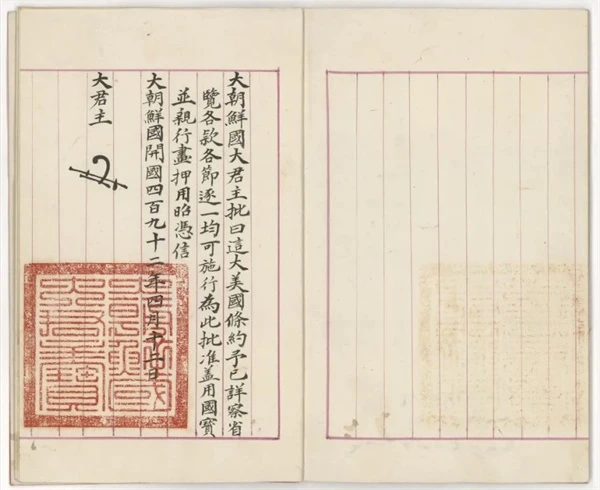 大朝鮮國大君主批曰這大美國條約予已詳察省
覽各款各節逐一均可施行為此批准盖用國寶
並親行畫押用昭憑信
大朝鮮國開國四百九十二年四月日
大君主
6